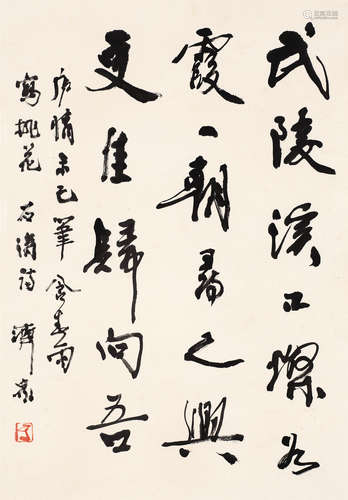 武陵溪口燦如
霞一朝尋之興
更佳歸向吾
廬情未已筆含春雨
寫桃花 石濤詩